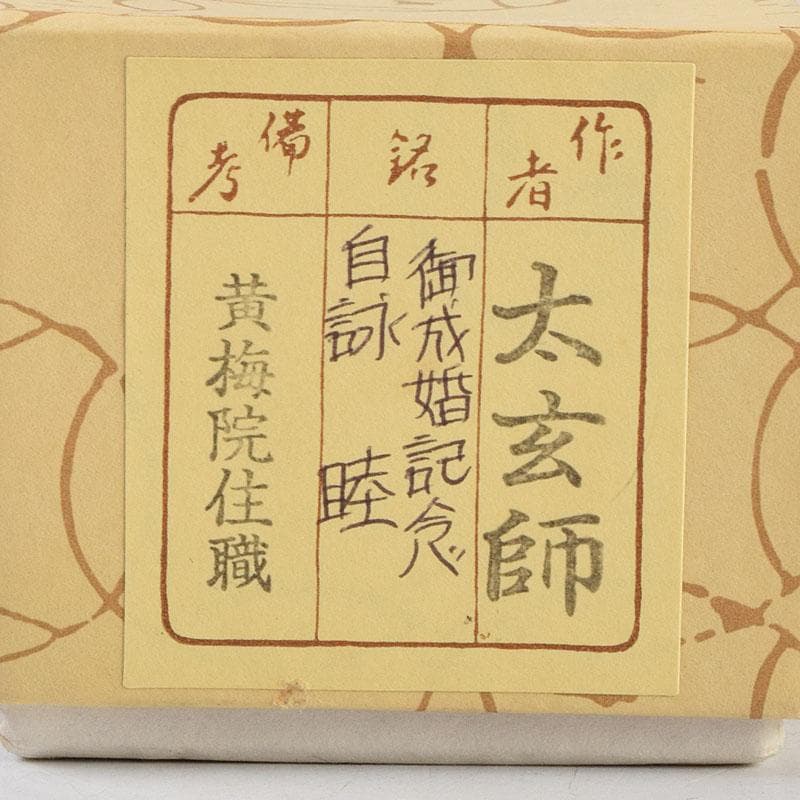 作者
太玄師
銘
御成婚記念
自詠 睦
備考
黄梅院住職